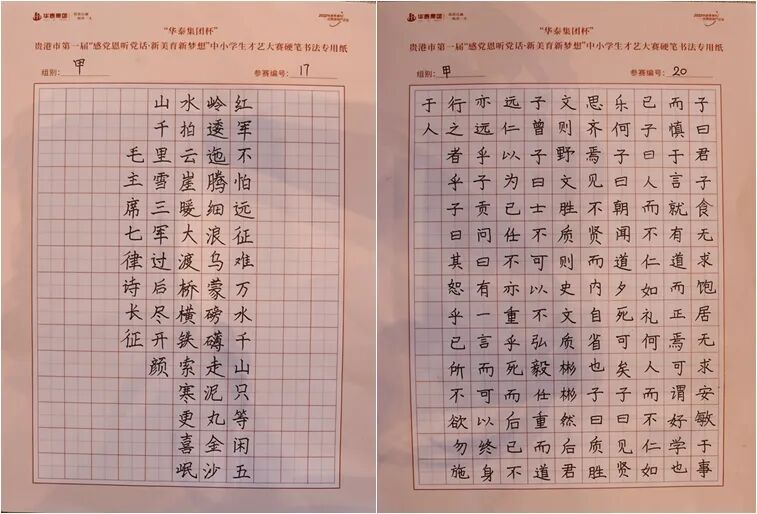 华泰集团
“华泰集团杯”
贵港市第一届“感党恩听党话·新美育新梦想”中小学生才艺大赛硬笔书法专用纸
组别：甲 参赛编号：17
红军不怕远征难万水千山只等闲五
岭逶迤腾细浪乌蒙磅礴走泥丸金沙
水拍云崖暖大渡桥横铁索寒更喜岷
山千里雪三军过后尽开颜
毛主席七律诗长征
华泰集团
“华泰集团杯”
贵港市第一届“感党恩听党话·新美育新梦想”中小学生才艺大赛硬笔书法专用纸
组别：甲 参赛编号：20
子曰君子食无求饱居无求安敏于事
而慎于言就有道而正焉可谓好学也
已子曰人而不仁如礼何人而不仁如
乐何子曰朝闻道夕死可矣子曰见贤
思齐焉见不贤而内自省也子曰质胜
文则野文胜质则史文质彬彬然后君
子曾子曰士不可以不弘毅任重而道
远仁以为己任不亦重乎死而后已不
亦远乎子贡问曰有一言而可以终身
行之者乎子曰其恕乎己所不欲勿施
于人